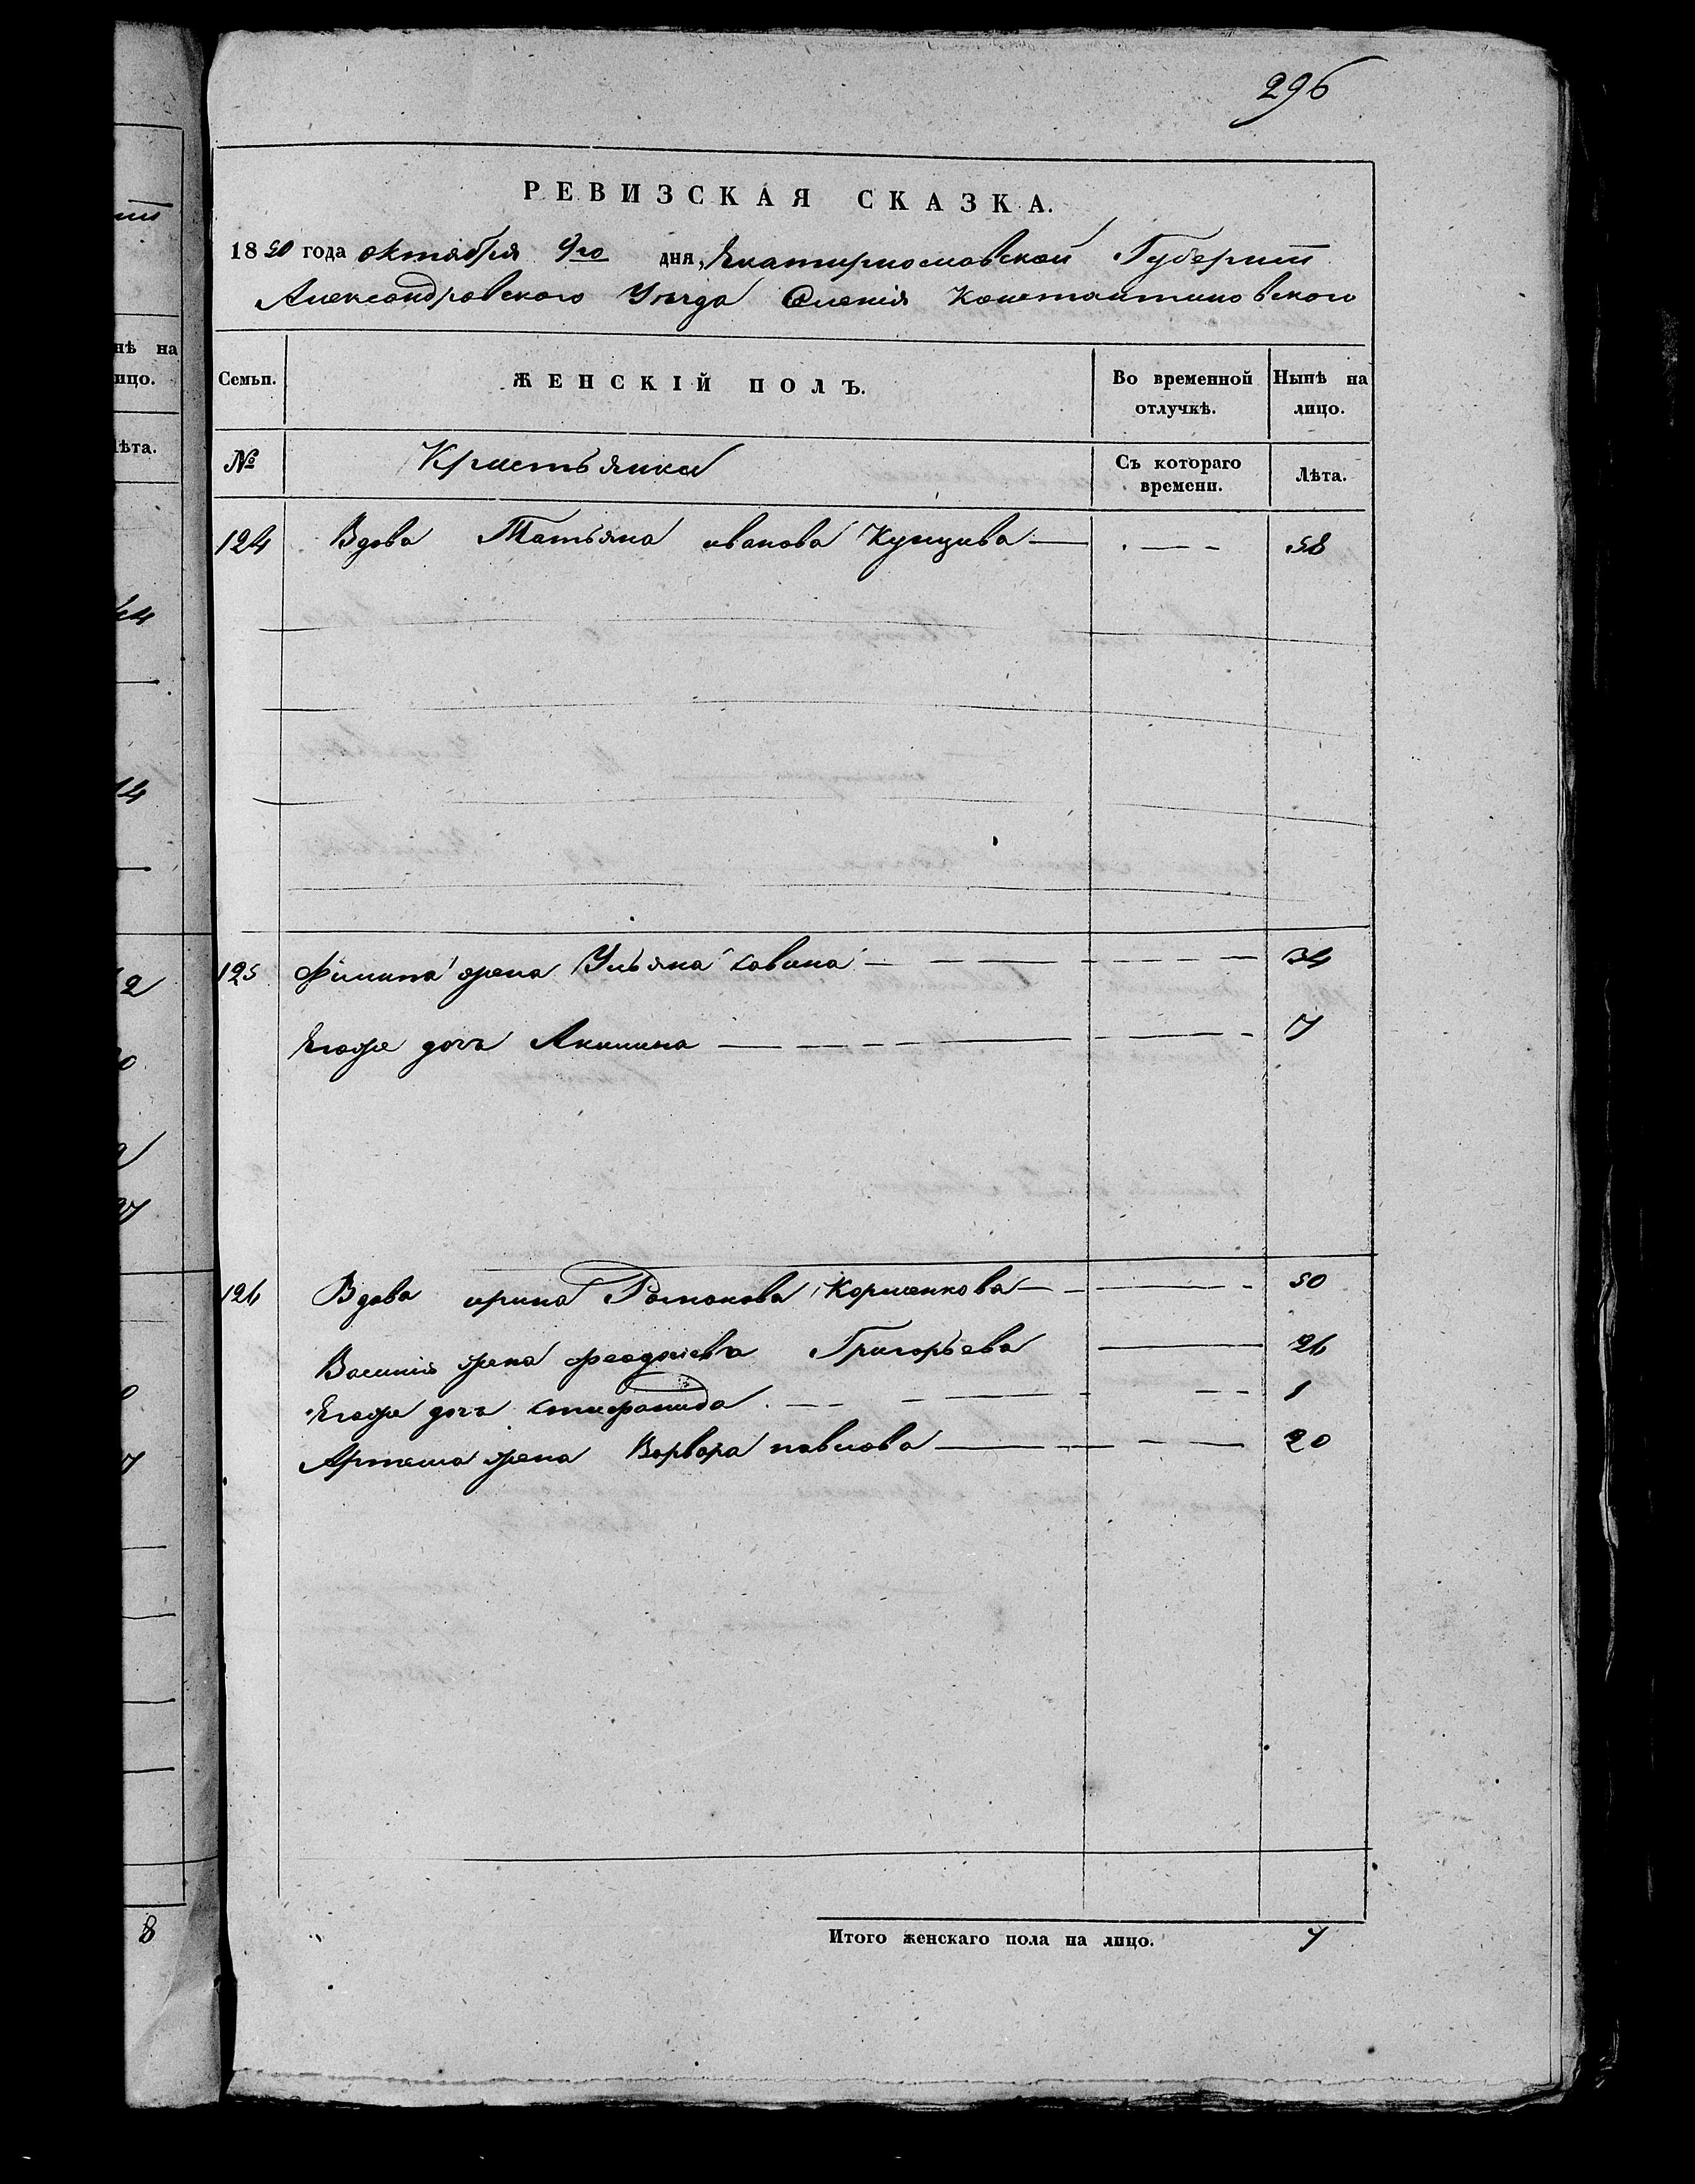 296
РЕВИЗСКАЯ СКАЗКА.
1850 года октября 9го дня, Екатеринославской Губернии
Александровского Уезда Селения Константиновского
Семьи. ЖЕНСКІЙ ПОЛЪ. Во временной отлучкѣ. Нынѣ на лицо.
№ Крестьянка Съ котораго времени. Лѣта.
124 Вдова Татьяна иванова 58
125 Филипа жена Ульяна савина 34
Егоже дочь Акилина 7
126 Вдова ирина Романова Корженкова 50
Василия жена феодосиева Григорьева 26
Егоже дочь стефанида 1
Артема жена Варвара павлова 20
Итого женскаго пола на лицо. 7
нѣ на
ицо.
лѣта.
44
14
2
8